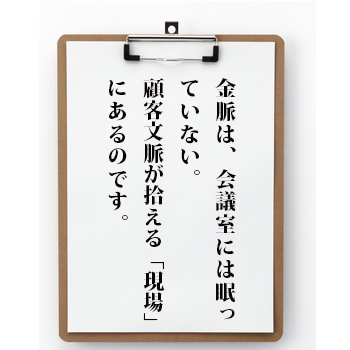 金脈は、会議室には眠っ
ていない。
顧客文脈が拾える「現場」
にあるのです。